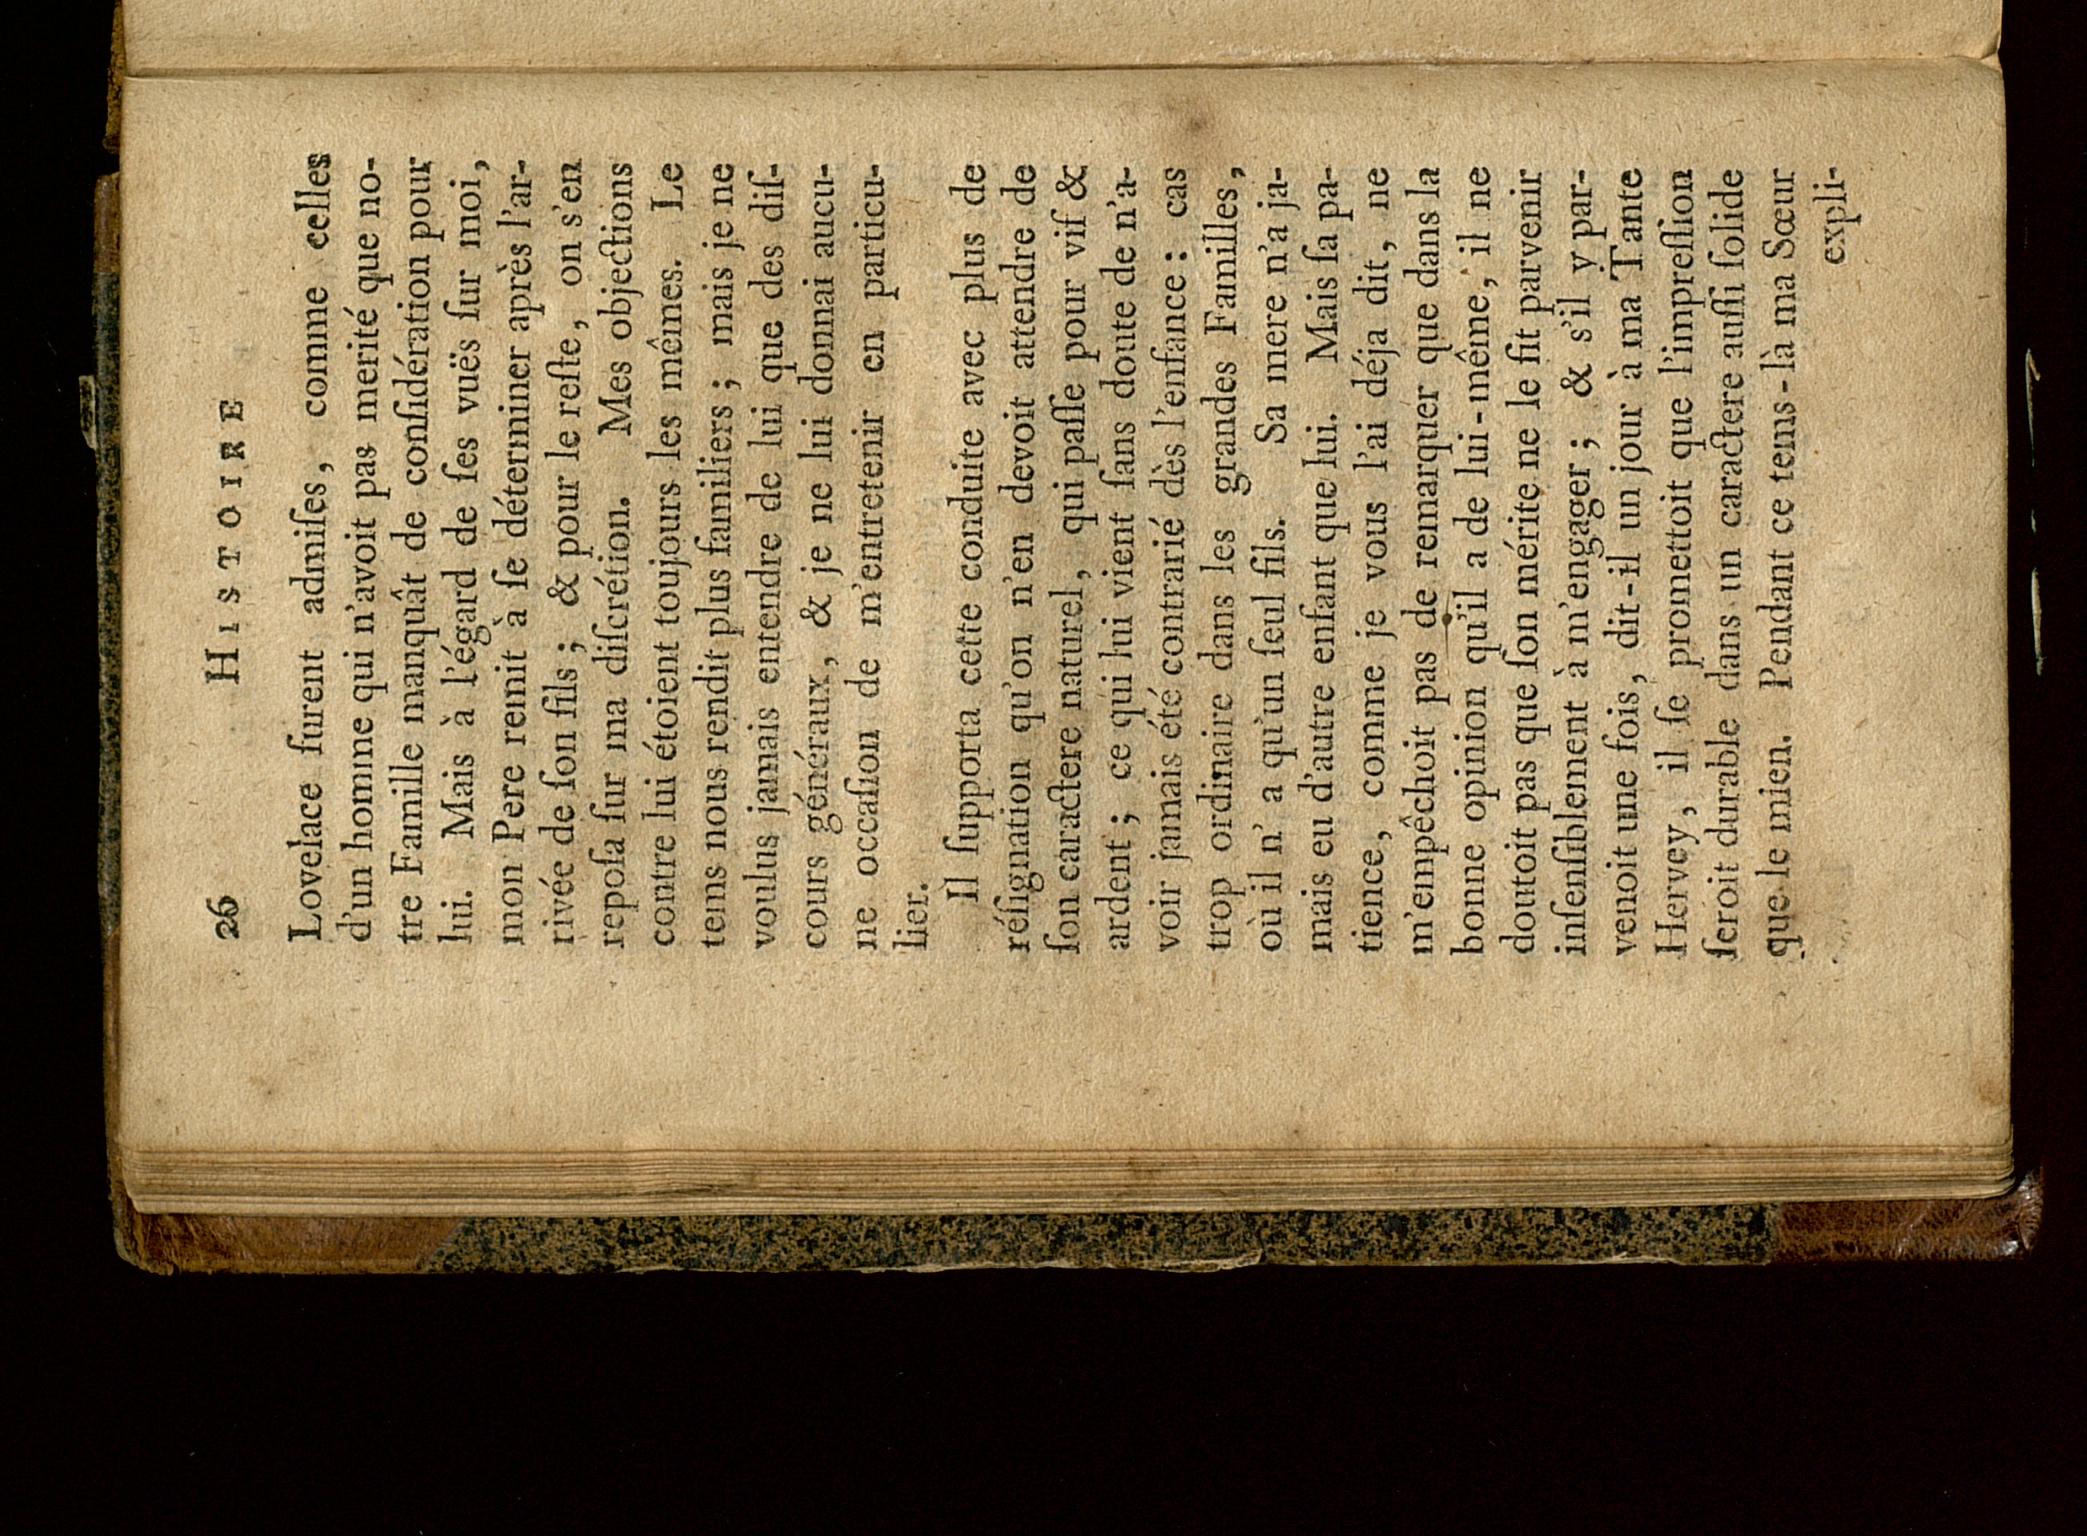 26 HISTOIRE
Lovelace furent admiſes, comme celles
d'un homme qui n'avoit pas merité que no-
tre Famille manquât de conſidération pour
lui. Mais à l'égard de ſes vuës ſur moi,
mon Pere remit à ſe déterminer après l'ar-
rivée de ſon fils; & pour le reſte, on s'en
repoſa ſur ma diſcrétion. Mes objections
contre lui étoient toujours les mêmes. Le
tems nous rendit plus familiers; mais je ne
voulus jamais entendre de lui que des diſ-
cours généraux, & je ne lui donnai aucu-
ne occaſion de m'entretenir en particu-
lier.
Il ſupporta cette conduite avec plus de
réſignation qu'on n'en devoit attendre de
ſon caractere naturel, qui paſſe pour vif &
ardent; ce qui lui vient ſans doute de n'a-
voir jamais été contrarié dès l'enfance: cas
trop ordinaire dans les grandes Familles,
où il n' a qu'un ſeul fils. Sa mere n'a ja-
mais eu d'autre enfant que lui. Mais ſa pa-
tience, comme je vous l'ai déja dit, ne
m'empêchoit pas de remarquer que dans la
bonne opinion qu'il a de lui-même, il ne
doutoit pas que ſon mérite ne le fit parvenir
inſenſiblement à m'engager; & s'il y par-
venoit une fois, dit-il un jour à ma Tante
Hervey, il ſe promettoit que l'impreſſion
ſeroit durable dans un caractere auſſi ſolide
que le mien. Pendant ce tems-là ma Sœur
expli-